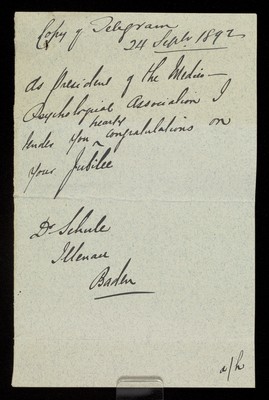 Copy of Telegram
24 Sept. 1892
As President of the Medico-
Psychological Association I
hearty
tender you congratulations on
your Jubilee
Dr Schule
Illenau
Baden
a/h